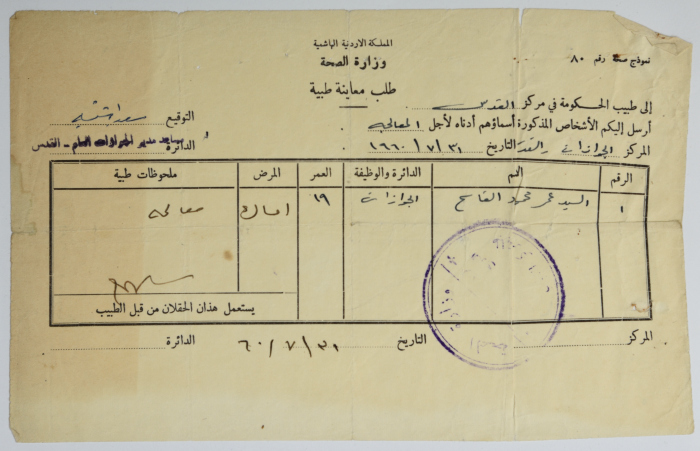 المملكة الاردنية الهاشمية
وزارة الصحة
نموذج صحة رقم ٨٠
طلب معاينة طبية
إلى طبيب الحكومة في مركز القدس
أرسل إليكم الأشخاص المذكورة أسماؤهم أدناه لأجل المعالجة
المركز الجوازات القدس التاريخ ٣١ / ٧ / ١٩٦٠
التوقيع
الدائرة مساعد مدير الجوازات العام - القدس
الرقم الاسم الدائرة والوظيفة العمر المرض ملحوظات طبية
١ السيد عمر محمود القاسم الجوازات ١٩ معالجة
يستعمل هذان الحقلان من قبل الطبيب
المركز التاريخ ٣١ / ٧ / ٦٠ الدائرة